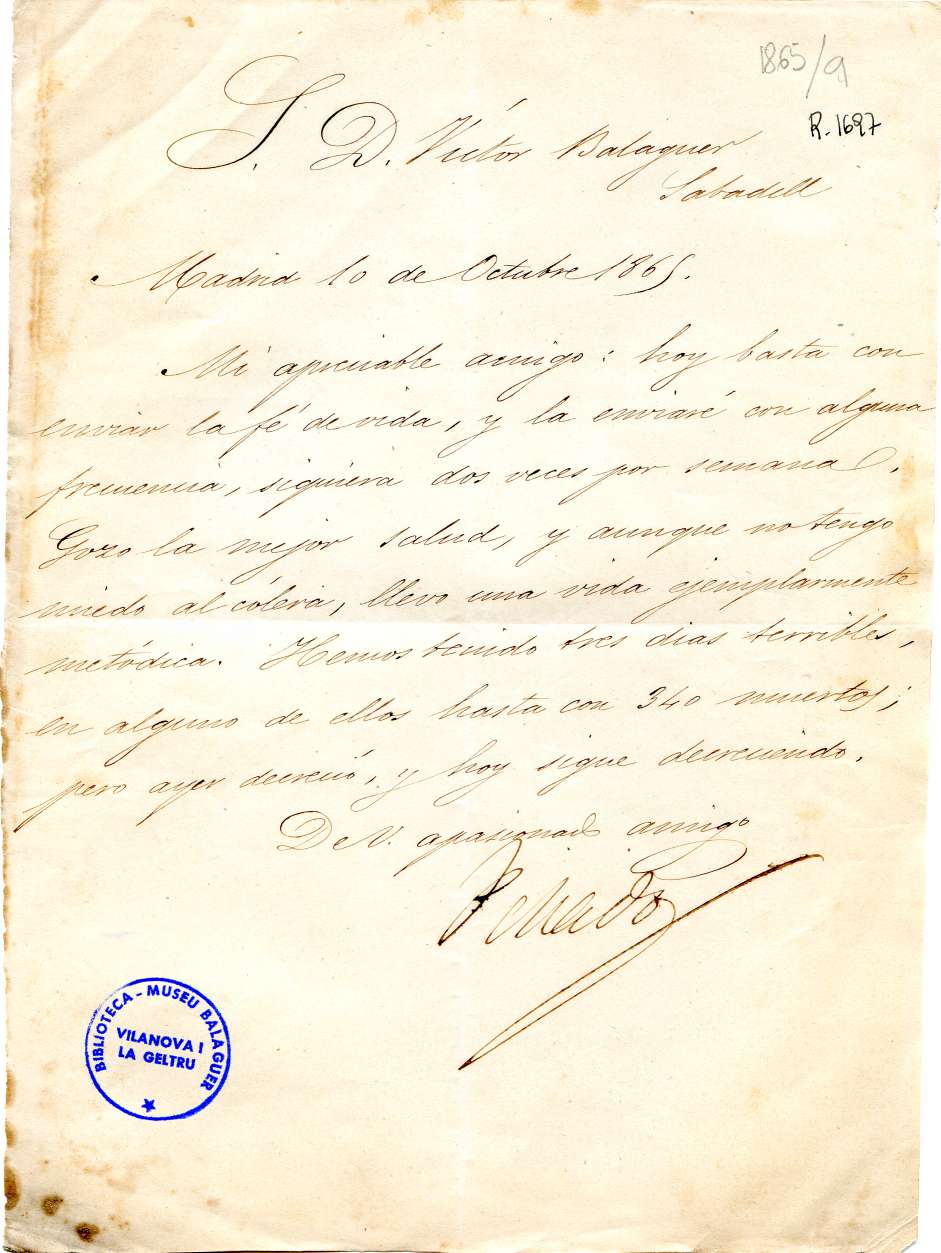 1865/9
R. 1697
S. D. Victór Balaguer
Sabadell
Madrid 10 de Octubre 1865.
Mi apreciable amigo: hoy basta con
enviar la fé de vida, y la enviaré con alguna
frecuencia, siquiera dos veces por semana.
Gozo la mejor salud, y aunque no tengo
miedo al cólera, llevo una vida ejemplarmente
metódica. Hemos tenido tres dias terribles,
en alguno de ellos hasta con 340 muertos;
pero ayer decreció, y hoy sigue decreciendo.
De V. apasionado amigo
BIBLIOTECA - MUSEU BALAGUER
VILANOVA I
LA GELTRU